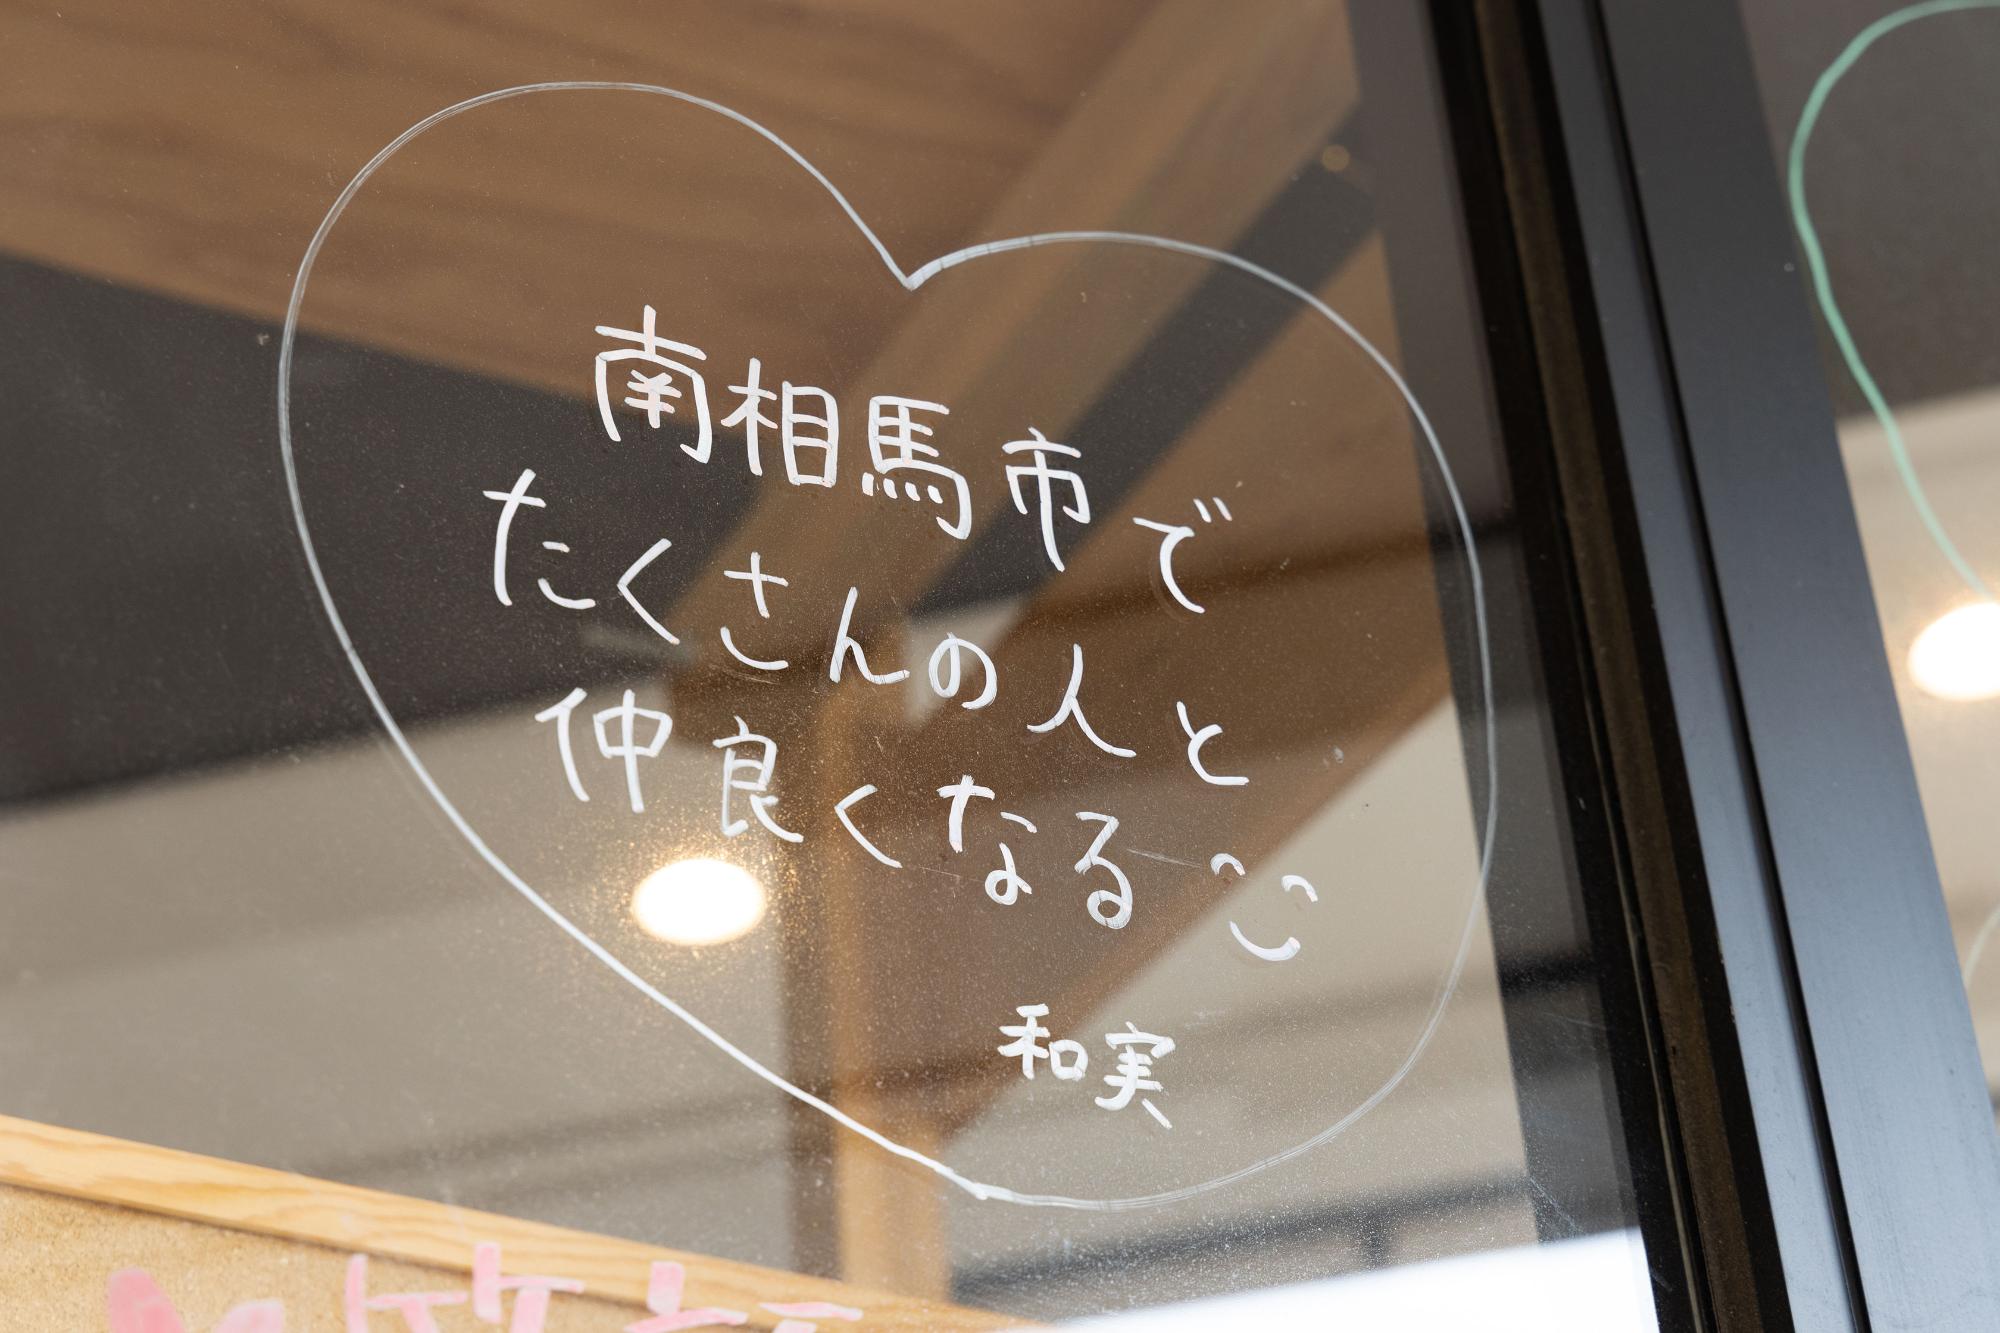 南相馬市で
たくさんの人と
仲良くなる
和実